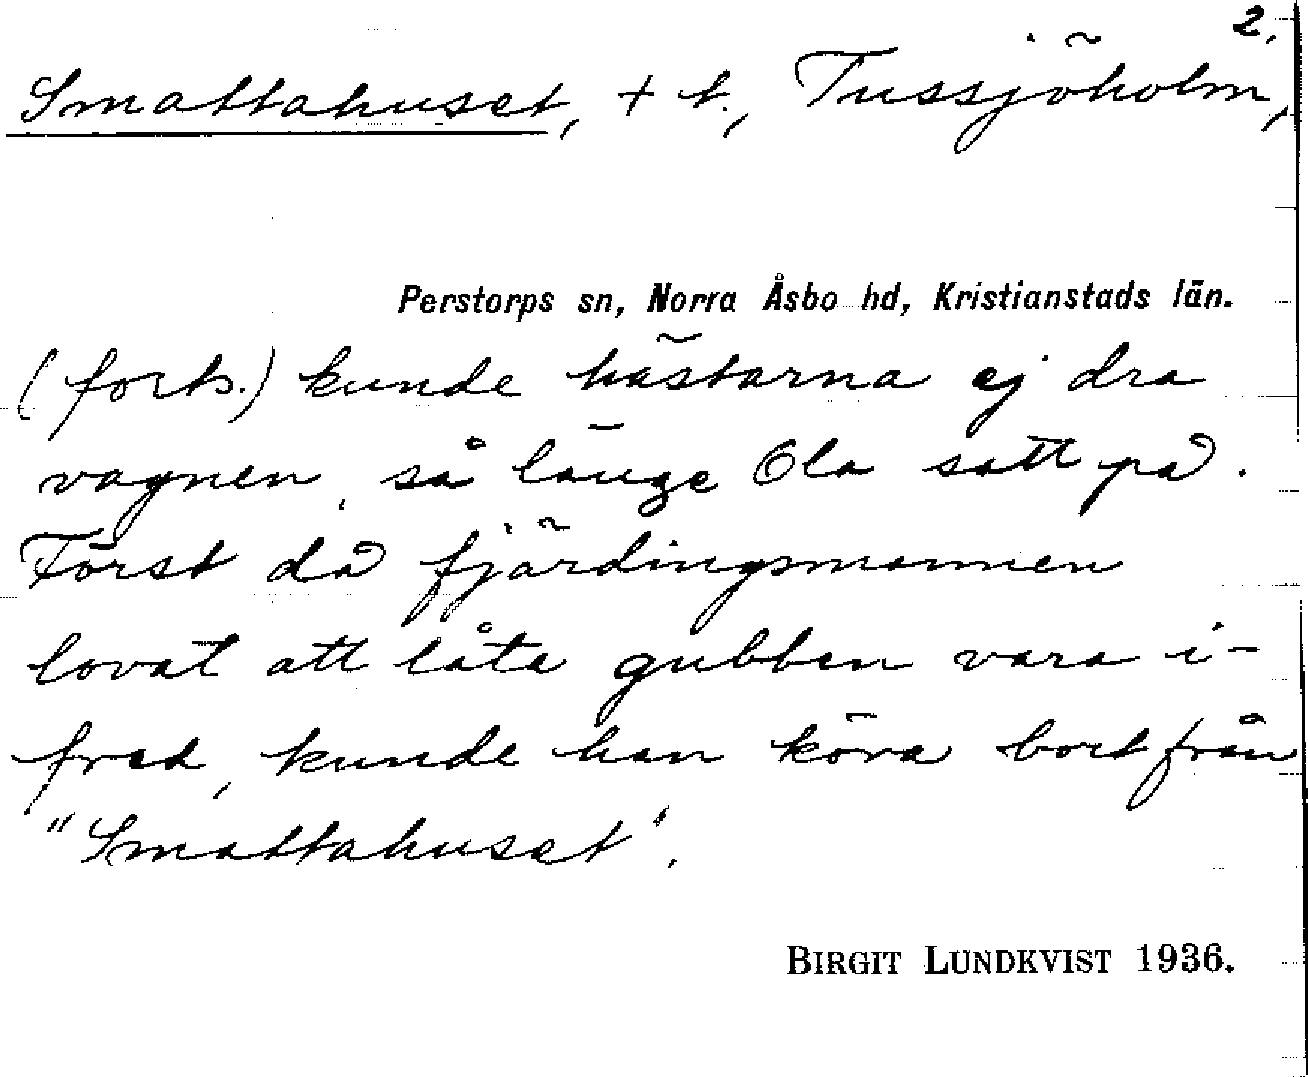 2.
Smattahuset, + t., Tussjöholm,
Perstorps sn, Norra Åsbo hd, Kristianstads län.
(forts.) kunde hästarna ej dra
vagnen, så länge Ola satt på.
Först då fjärdingsmannen
lovat att låta gubben vara i-
fred, kunde han köra bort från
"Smattahuset".
BIRGIT LUNDKVIST 1936.